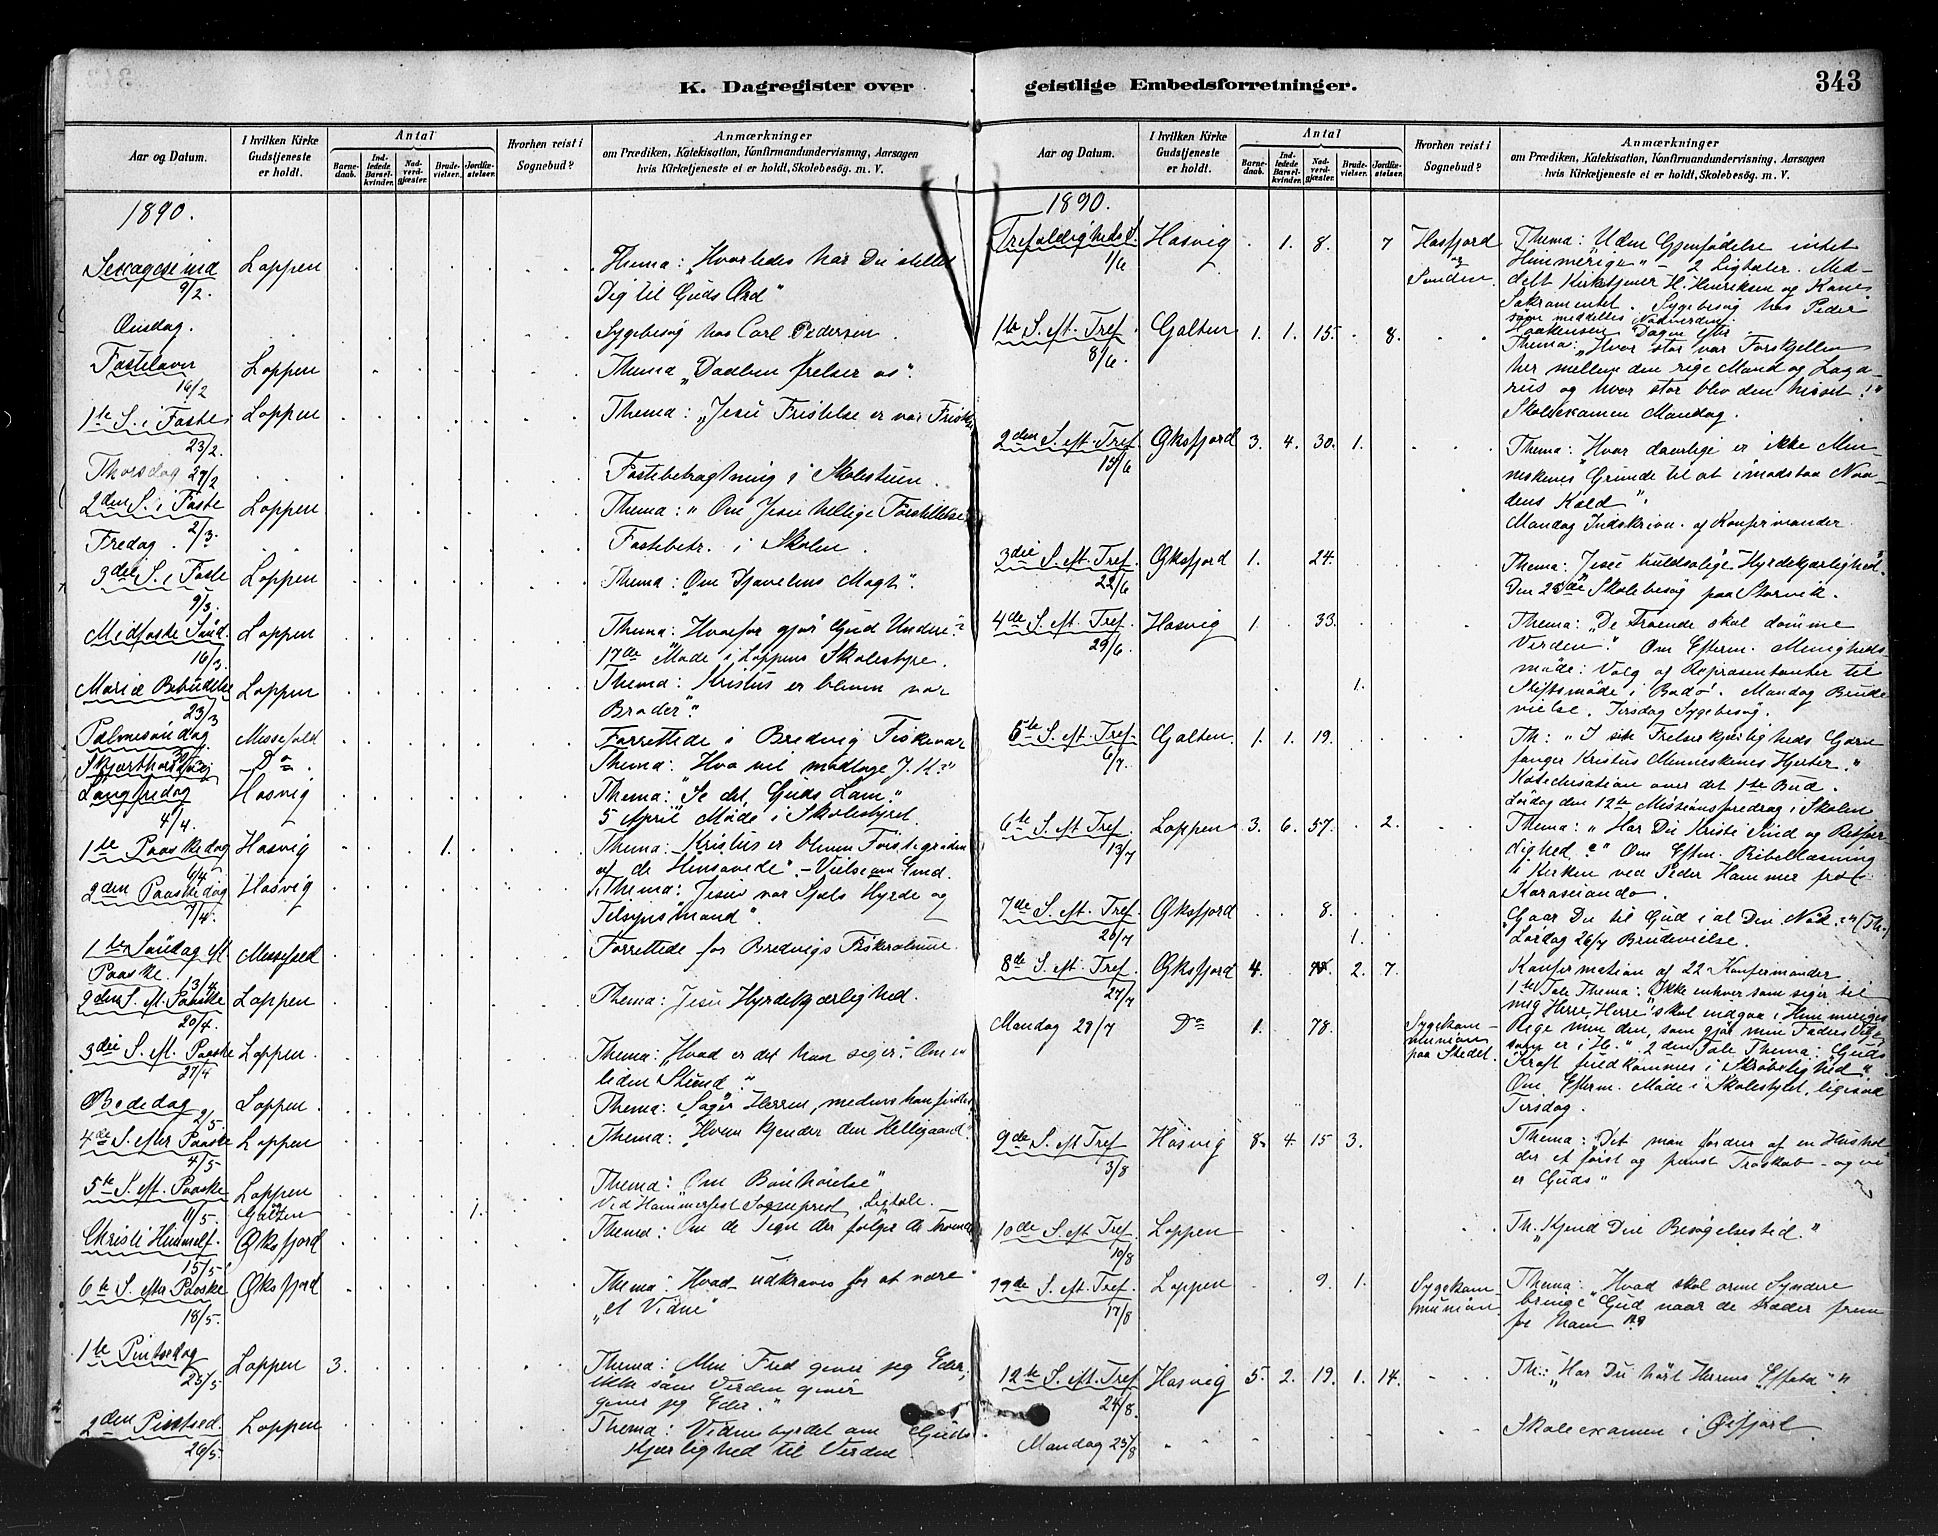 K. Dagregister over
Aar og Datum.
I hvilken Kirke Gudstjeneste er holdt.
Antal
Barnedaab.
Indledede Barselkvinder.
Nadverdgjæster.
Brudevielser.
Jordfæstelser.
Hvorhen reist i Sognebud?
Anmærkninger
om Prædiken, Katekisation, Konfirmandundervisning, Aarsagen
hvis Kirketjeneste ei er holdt, Skolebesøg. m. V.
1890.
9/2. Loppen Thema: „Hvorledes har Du stillet
Dig til Guds Ord"
Onsdag. Sygebesøg hos Carl Pedersen
Fastelavn 16/2 Loppen Thema „Daaben frelser os"
1te S. i Faste 23/2. Loppen Thema: „Jesu Fristelse er vor
Thorsdag 27/2 Fastebetragtning i Skolestuen.
2den S. i Faste 2/3. Loppen Thema: „Om Jesu hellige
Fredag. Fastebetr. i Skolen.
3die S. i Faste 9/3. Loppen Thema: „Om Djævelens Magt".
Midfaste Sønd. 16/3. Loppen Thema: „Hvorfor gjør Gud Undere?"
17de Møde i Loppens Skolestyre.
Mariæ Bebudelse 23/3 Loppen Thema: Kristus er bleven vor
Broder".
Palmesøndag Messefald Forrettede i Bredvig Fiskevær
Do. Thema: „Hva vil modtage J. Kr?"
Langfredag 4/4. Hasvig Thema: „Se det Guds Lam."
5 April Møde i Skolestyret.
1te Paaskedag 6/4 Hasvig 1. Thema: Kristus er bleven Førstegrøden
af de Hensovede". - Vielse
2den Paaskedag 7/4. Hasvig Thema: Jesus vor Sjæls Hyrde og
Tilsynsmand".
1te Søndag eft. Paaske. 13/4 Messefald Forrettede for Bredvigs
2den S. eft. Paaske 20/4. Loppen Thema: Jesu Hyrdekjærlighed.
3die S. eft. Paaske 27/4 Loppen. Thema: „Hvad er det han siger: - Om en
liden Stund".
Bededag 2/5. Loppen. Thema: Søger Herren, medens han findes
4de S. efter Paaske 4/5 Loppen Thema: „Hvem kjender den Helligaand"
5te S. eft. Paaske 11/5. Loppen Thema: Om Bønhørelse"
Galten 1. Ved Hammerfest Sogneprest, Ligtale.
Christi Himmelf. 15/5 Øksfjord Thema: Om de Tegn der følger de Troende
6te S. efter Paaske 18/5. Øksfjord Thema: Hvad udkræves for at være
„et Vidne"
1te Pintsedag 25/5 Loppen 3. Thema: „Min Fred giver jeg Eder,
ikke som Verden giver
giver jeg Eder."
2den Pintsed. 26/5. Loppen Thema: Vidnesbyrdet om Guds
Kjærlighed til Verden
geistlige Embedsforretninger.
343
Aar og Datum.
I hvilken Kirke Gudstjeneste er holdt.
Antal
Barnedaab.
Indledede Barselkvinder.
Nadverdgjæster.
Brudevielser.
Jordfæstelser.
Hvorhen reist i Sognebud?
Anmærkninger
om Prædiken, Katekisation, Konfirmandundervisning, Aarsagen
hvis Kirketjeneste ei er holdt, Skolebesøg. m. V.
1890.
Trefoldighedss. 1/6 Hasvig 1. 8. 7 Hasfjord og Thema: „Uden Gjenfødelse intet
Himmerige" - 2 Ligtaler. Med-
delt Kirketjener H. Henriksen og Kone
Sakramentet. Sygebesøg hos Peder
Haakensen Dagen efter
1te S. eft. Tref. 8/6. Galten 1. 1. 15. 8. Thema: „Hvor stor var Forskjellen
her mellem den rige Mand og Laza-
rus og hvor stor blev den hisset!"
Skoleexamen Mandag.
2den S. eft. Tref. 15/6 Øksfjord 3. 4. 30. 1. Thema: „Hvor daarlige er ikke Men-
neskenes Grunde til at imodstaa Naa-
dens Kald".
Mandag Indskrivn. af Konfirmander.
3die S. eft. Tref. 22/6 Øksfjord 1. 24. Thema: Jesu huldsalige Hyrdekjærlighed.
Skolebesøg paa Storvik.
4de S. eft. Tref. 29/6 Hasvig 1. 33. Thema: „De Troende skal dømme
Verden". Om Efterm. Menigheds-
møde: Valg af Repræsentanter til
1. Stiftsmøde i Bodø. Mandag Brude-
vielse. Tirsdag Sygebesøg.
5te S. eft. Tref. 6/7. Galten 1. 1. 19. Th: „I sit Frelserkjærligheds Garn
fanger Kristus Menneskenes Hjerter."
Katechisation over det 1te Bud.
Lørdag den 12te Missionsforedrag i Skolen
6te S. eft. Tref. 13/7 Loppen 3. 6. 57. 2. Thema: „Har Du Kristi Sind og Retfær-
dighed?" Om Eftm. Bibellæsning
i Kirken ved Peder Hammer fra
7de S. eft. Tref. 20/7 Øksfjord 8. Gaar Du til Gud i al Din Nød?" (Th.)
1. Lørdag 26/7 Brudevielse.
8de S. eft. Tref. 27/7 Øksfjord 4. 2. 7. Konfirmation af 22 Konfirmander
1te Tale Thema: Ikke enhver som siger til
mig Herre, Herre! skal indgaa i Himmeriges
Mandag 28/7 Do 1. 78. Sygekommunion paa Stedet. Rige men den, som gjør min Faders Vilje
som er i H." 2den Tale Thema: Guds
Kraft fuldkommes i Skrøbelighed"
Om Efterm. Møde i Skolestyret, ligesaa
Tirsdag.
9de S. eft Tref. 3/8 Hasvig 8. 4. 15 3. Thema: „Det man fordrer af en Hushol-
der et først og fremst Troskab - og vi
er Guds"
10de S. eft Tref. 10/8 Loppen Th. „Kjend Din Besøgelsestid."
S. eft. Tref. 17/8 Loppen 9. 1. Sygekommunion. Thema: „Hvad skal arme Syndere
bringe Gud naar de træder frem
for ham"?
12te S. eft. Tref. 24/8. Hasvig 5. 2. 19. 1. 14. Th.: „Har Du hørt Herrens „Effata""
Mandag 25/8 Skoleexamen i